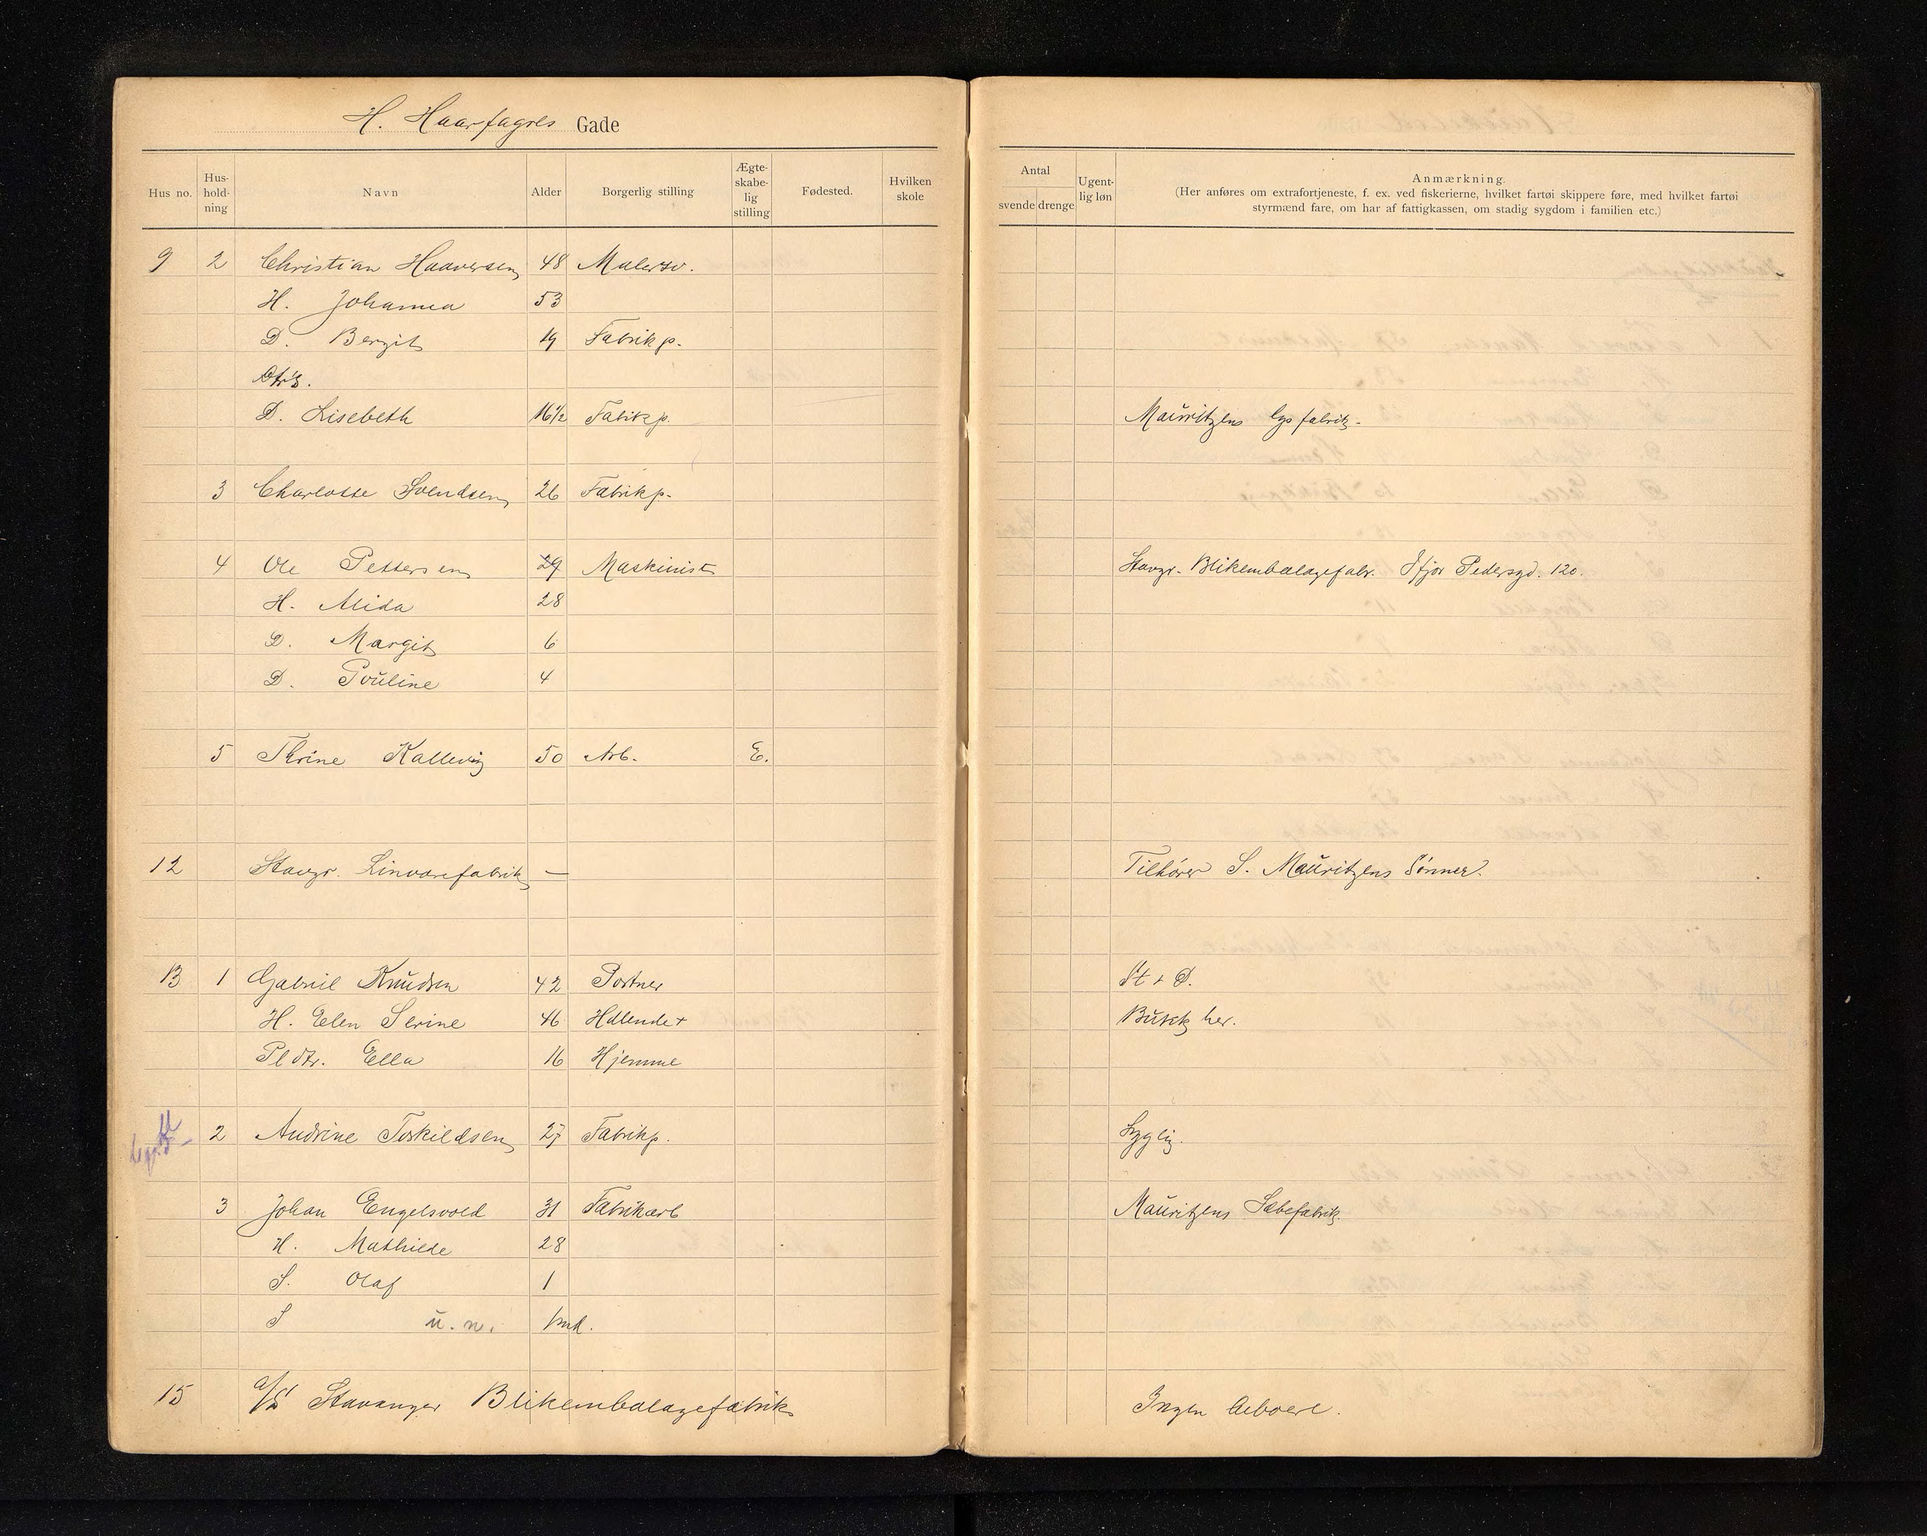 H. Haarfagres Gade
Hus no. Hus-hold-ning Navn Alder Borgerlig stilling Ægte-skabe-lig stilling Fødested. Hvilken skole Antal svende drenge Ugent-lig løn Anmærkning.
(Her anføres om extrafortjeneste, f. ex. ved fiskerierne, hvilket fartøi skippere føre, med hvilket fartøi
styrmænd fare, om har af fattigkassen, om stadig sygdom i familien etc.)
9 2 Christian Haaversen 48 Malersv.
H. Johanna 53
D. Bergit 19 Fabrikp.
D. Lisebeth 16½ Fabrikp. Mauritzens fabrik.
3 Charlotte Svendsen 26 Fabrikp.
4 Ole Pettersen 29 Maskinist Stavgr. Blikembalagefabr. Ifjor Pedersgd. 120.
H. Alida 28
D. Margit 6
D. Pouline 4
5 Thrine Kallevig 50 Arb. E.
12 Stavgr. Linvarefabrik — Tilhører S. Mauritzens Sønner.
13 1 Gabriel Knudsen 42 Portner St & D.
H. Elen Serine 46 Hdlende + Butik her.
Pl dtr. Ella 16 Hjemme
2 Andrine Torkildsen 27 Fabrikp. Syglig.
3 Johan Engelsvold 31 Fabrikarb Mauritzens Sæbefabrik.
H. Mathilde 28
S. Olaf 1
S u. n. 1 md.
15 a/s Stavanger Blikembalagefabrik Ingen beboere.